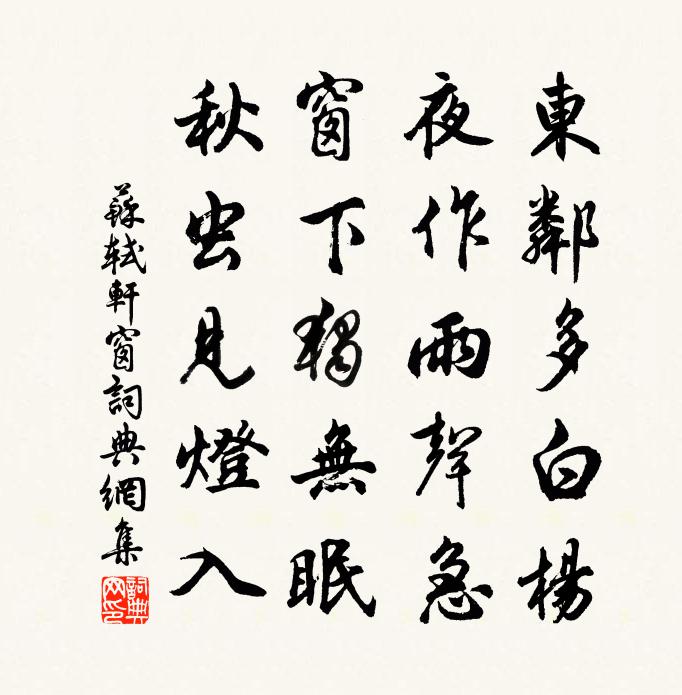 東鄰多白楊
夜作雨聲急
窗下獨無眠
秋虫見燈入
蘇軾軒窗詞典網集
詞典網印